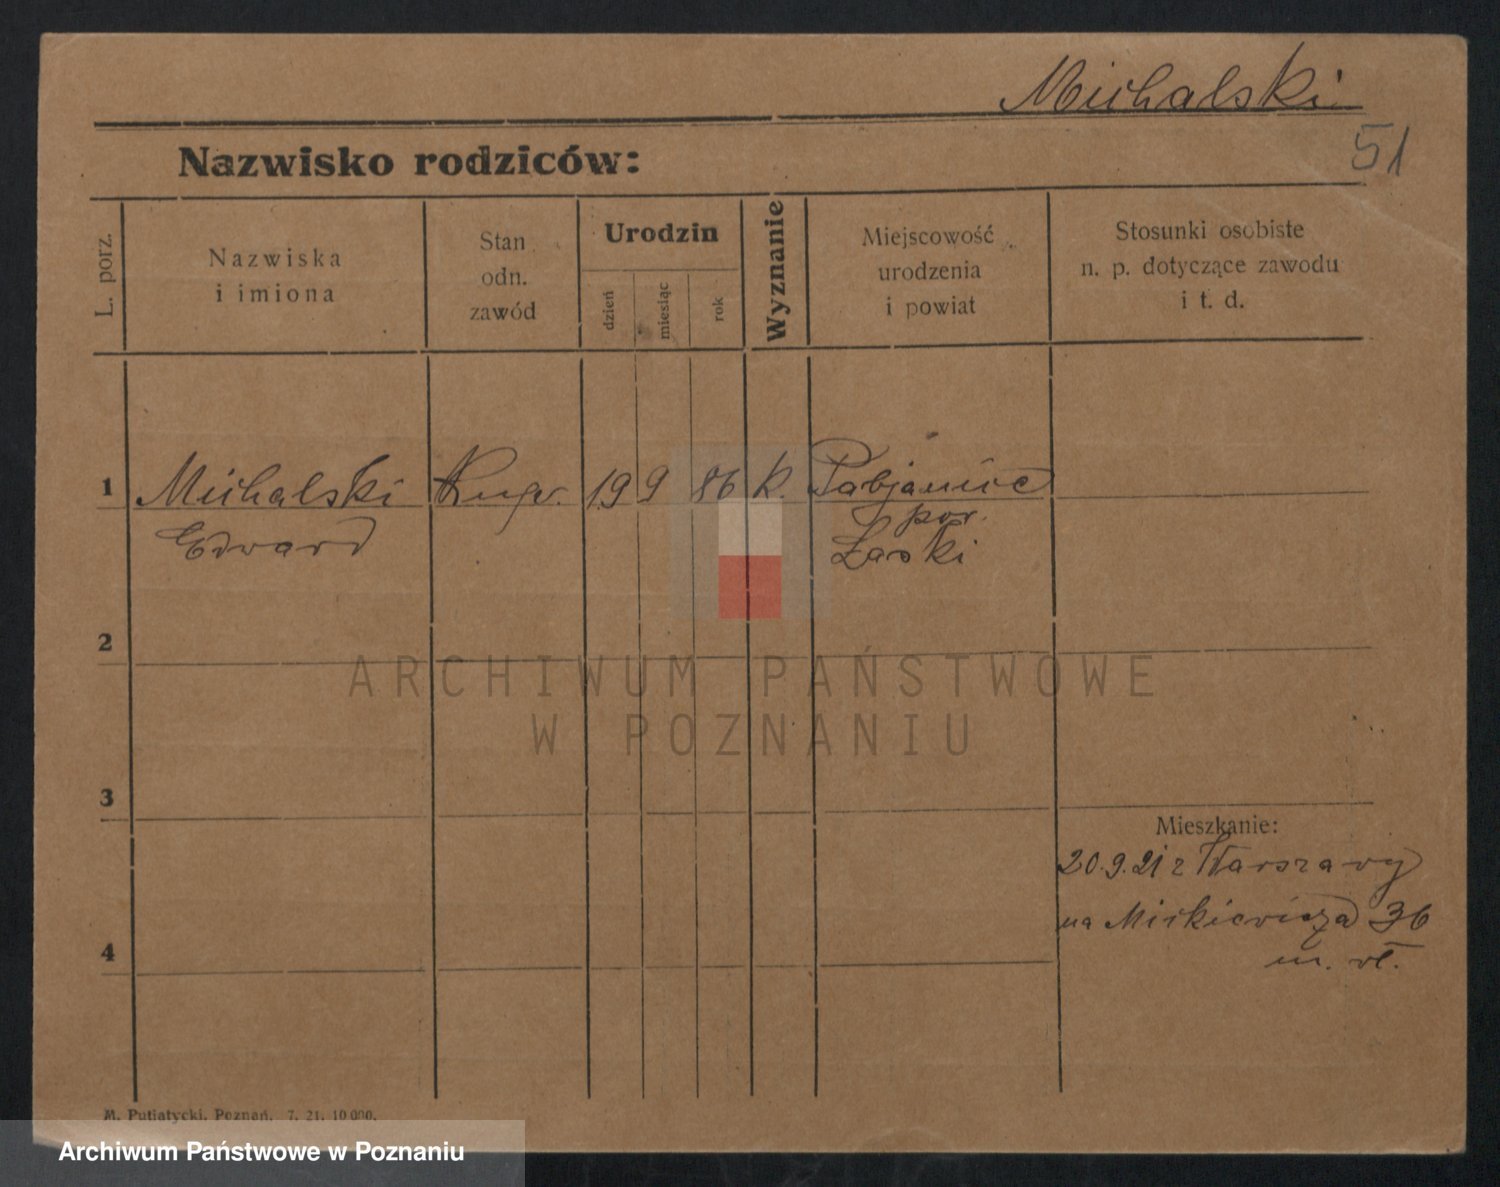 Michalski
51
Nazwisko rodziców:
L. porz.
Nazwiska
i imiona
Stan
odn.
zawód
Urodzin
dzień
miesiąc
rok
Wyznanie
Miejscowość
urodzenia
i powiat
Stosunki osobiste
n. p. dotyczące zawodu
i t. d.
1 Michalski 19 9 86 k. Pabjanice
Edward pow.
Łaski
2
ARCHIWUM PAŃSTWOWE
W POZNANIU
3
Mieszkanie:
20.9.21 z Warszawy
na Mickiewicza 36
4
m. wł.
M. Putiatycki. Poznań. 7. 21. 10 000.
Archiwum Państwowe w Poznaniu